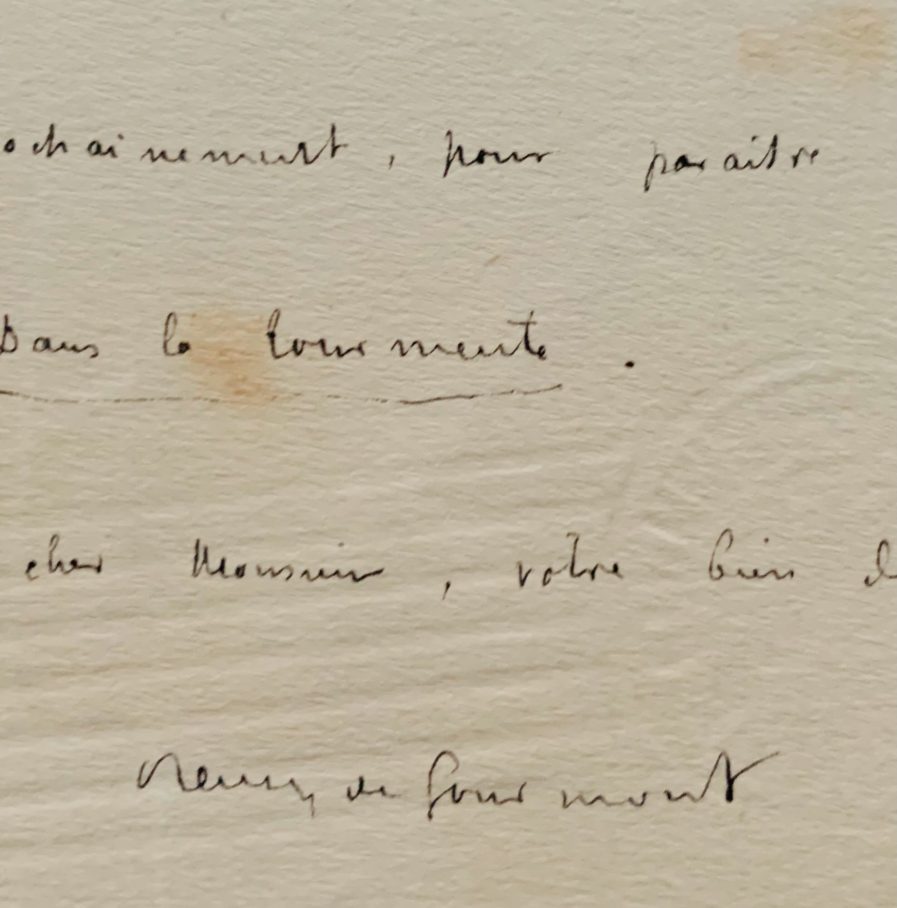 ochainement, pour paraitre
Dans la tourmente.
cher Monsieur, votre bien d
Remy de Gourmont